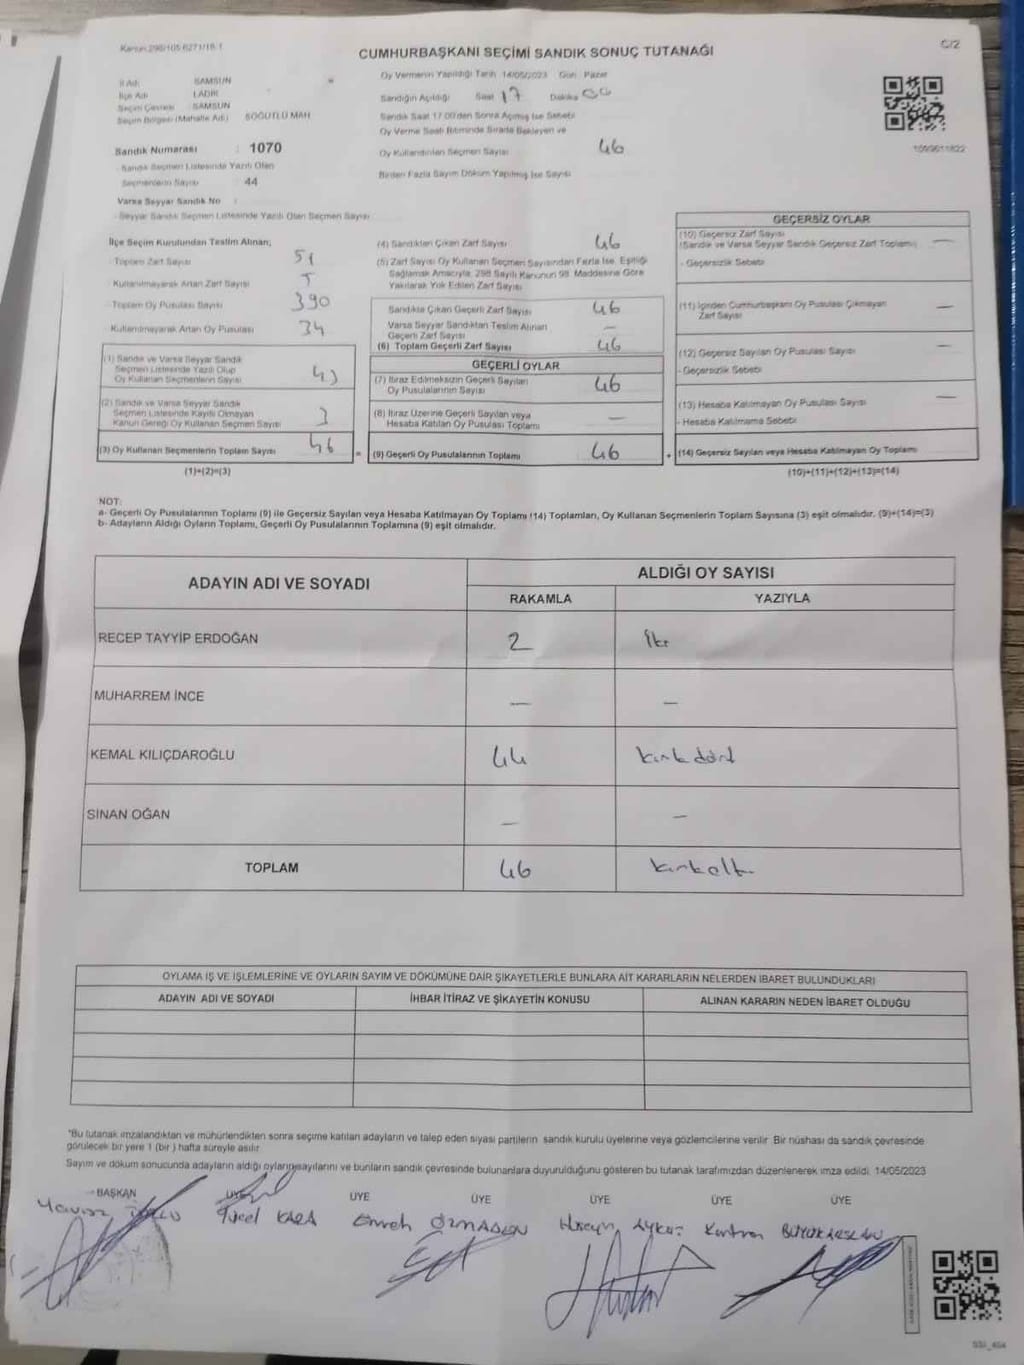 Kanun:298/105-6271/18-1
C/2
CUMHURBAŞKANI SEÇİMİ SANDIK SONUÇ TUTANAĞI
İl Adı SAMSUN
İlçe Adı LADİK
Seçim Çevresi SAMSUN
Seçim Bölgesi (Mahalle Adı) SÖĞÜTLÜ MAH
Sandık Numarası : 1070
- Sandık Seçmen Listesinde Yazılı Olan
Seçmenlerin Sayısı : 44
Varsa Seyyar Sandık No :
- Seyyar Sandık Seçmen Listesinde Yazılı Olan Seçmen Sayısı
Oy Vermenin Yapıldığı Tarih 14/05/2023 Gün Pazar
Sandığın Açıldığı Saat 17 Dakika 00
Sandık Saat 17.00'den Sonra Açılmış İse Sebebi
Oy Verme Saati Bitiminde Sırada Bekleyen ve
Oy Kullandırılan Seçmen Sayısı 46
Birden Fazla Sayım Döküm Yapılmış İse Sayısı
İlçe Seçim Kurulundan Teslim Alınan;
- Toplam Zarf Sayısı 51
- Kullanılmayarak Artan Zarf Sayısı 5
- Toplam Oy Pusulası Sayısı 390
- Kullanılmayarak Artan Oy Pusulası 34
(1) Sandık ve Varsa Seyyar Sandık
Seçmen Listesinde Yazılı Olup
Oy Kullanan Seçmenlerin Sayısı 43
(2) Sandık ve Varsa Seyyar Sandık
Seçmen Listesinde Kayıtlı Olmayan
Kanun Gereği Oy Kullanan Seçmen Sayısı 3
(3) Oy Kullanan Seçmenlerin Toplam Sayısı 46
(1)+(2)=(3)
(4) Sandıktan Çıkan Zarf Sayısı 46
(5) Zarf Sayısı Oy Kullanan Seçmen Sayısından Fazla İse, Eşitliği
Sağlamak Amacıyla, 298 Sayılı Kanunun 98. Maddesine Göre
Yakılarak Yok Edilen Zarf Sayısı
Sandıkta Çıkan Geçerli Zarf Sayısı 46
Varsa Seyyar Sandıktan Teslim Alınan
Geçerli Zarf Sayısı —
(6) Toplam Geçerli Zarf Sayısı 46
GEÇERLİ OYLAR
(7) İtiraz Edilmeksizin Geçerli Sayılan
Oy Pusulalarının Sayısı 46
(8) İtiraz Üzerine Geçerli Sayılan veya
Hesaba Katılan Oy Pusulası Toplamı —
= (9) Geçerli Oy Pusulalarının Toplamı 46
GEÇERSİZ OYLAR
(10) Geçersiz Zarf Sayısı
(Sandık ve Varsa Seyyar Sandık Geçersiz Zarf Toplamı) —
- Geçersizlik Sebebi
(11) İçinden Cumhurbaşkanı Oy Pusulası Çıkmayan
Zarf Sayısı —
(12) Geçersiz Sayılan Oy Pusulası Sayısı —
- Geçersizlik Sebebi
(13) Hesaba Katılmayan Oy Pusulası Sayısı —
- Hesaba Katılmama Sebebi
+ (14) Geçersiz Sayılan veya Hesaba Katılmayan Oy Toplamı
(10)+(11)+(12)+(13)=(14)
NOT:
a- Geçerli Oy Pusulalarının Toplamı (9) ile Geçersiz Sayılan veya Hesaba Katılmayan Oy Toplamı (14) Toplamları, Oy Kullanan Seçmenlerin Toplam Sayısına (3) eşit olmalıdır. (9)+(14)=(3)
b- Adayların Aldığı Oyların Toplamı, Geçerli Oy Pusulalarının Toplamına (9) eşit olmalıdır.
ADAYIN ADI VE SOYADI
ALDIĞI OY SAYISI
RAKAMLA YAZIYLA
RECEP TAYYİP ERDOĞAN 2 iki
MUHARREM İNCE — —
KEMAL KILIÇDAROĞLU 44 kırkdört
SİNAN OĞAN — —
TOPLAM 46 kırkaltı
OYLAMA İŞ VE İŞLEMLERİNE VE OYLARIN SAYIM VE DÖKÜMÜNE DAİR ŞİKAYETLERLE BUNLARA AİT KARARLARIN NELERDEN İBARET BULUNDUKLARI
ADAYIN ADI VE SOYADI İHBAR İTİRAZ VE ŞİKAYETİN KONUSU ALINAN KARARIN NEDEN İBARET OLDUĞU
*Bu tutanak imzalandıktan ve mühürlendikten sonra seçime katılan adayların ve talep eden siyasi partilerin sandık kurulu üyelerine veya gözlemcilerine verilir. Bir nüshası da sandık çevresinde
görülecek bir yere 1 (bir) hafta süreyle asılır.
Sayım ve döküm sonucunda adayların aldığı oyların sayılarını ve bunların sandık çevresinde bulunanlara duyurulduğunu gösteren bu tutanak tarafımızdan düzenlenerek imza edildi. 14/05/2023
BAŞKAN ÜYE ÜYE ÜYE ÜYE ÜYE ÜYE
Yücel KARA Emrah Hüseyin BÜYÜKARSLAN